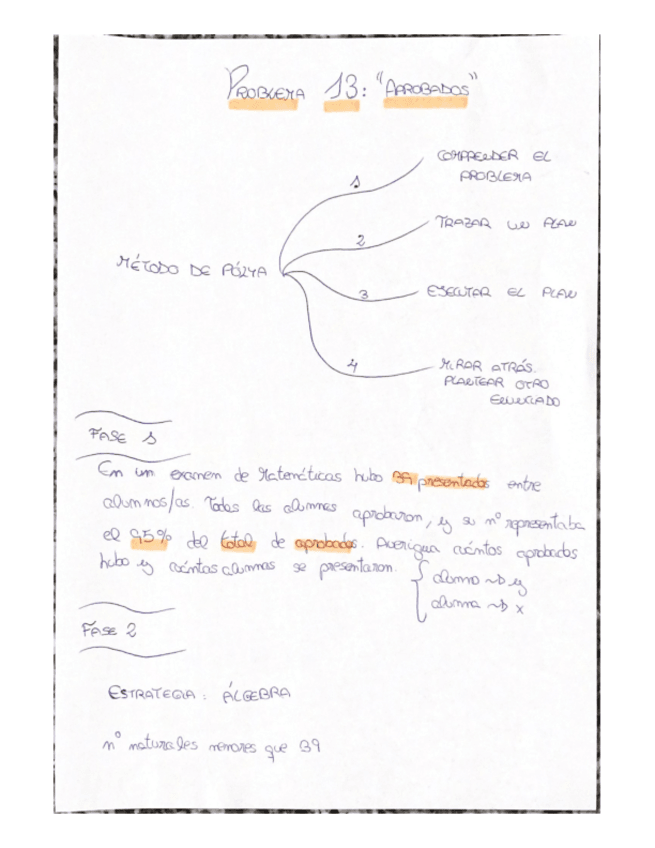 PROBLEMA 13: "APROBADOS"
MÉTODO DE PÓLYA
1
COMPRENDER EL
PROBLEMA
2
TRAZAR UN PLAN
3
EJECUTAR EL PLAN
4
MIRAR ATRÁS.
PLANTEAR OTRO
ENUNCIADO
FASE 1
En un examen de Matemáticas hubo 39 presentados entre
alumnos/as. Todas las alumnas aprobaron, y su nº representaba
el 95% del total de aprobados. Averigua cuántos aprobados
hubo y cuántas alumnas se presentaron.
alumno → y
alumna → x
FASE 2
ESTRATEGIA: ÁLGEBRA
nº naturales menores que 39